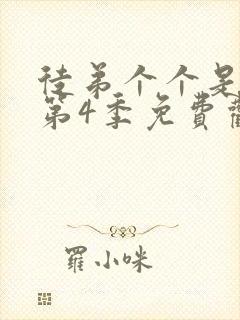 徒弟个个是
第4季免費
羅小咪